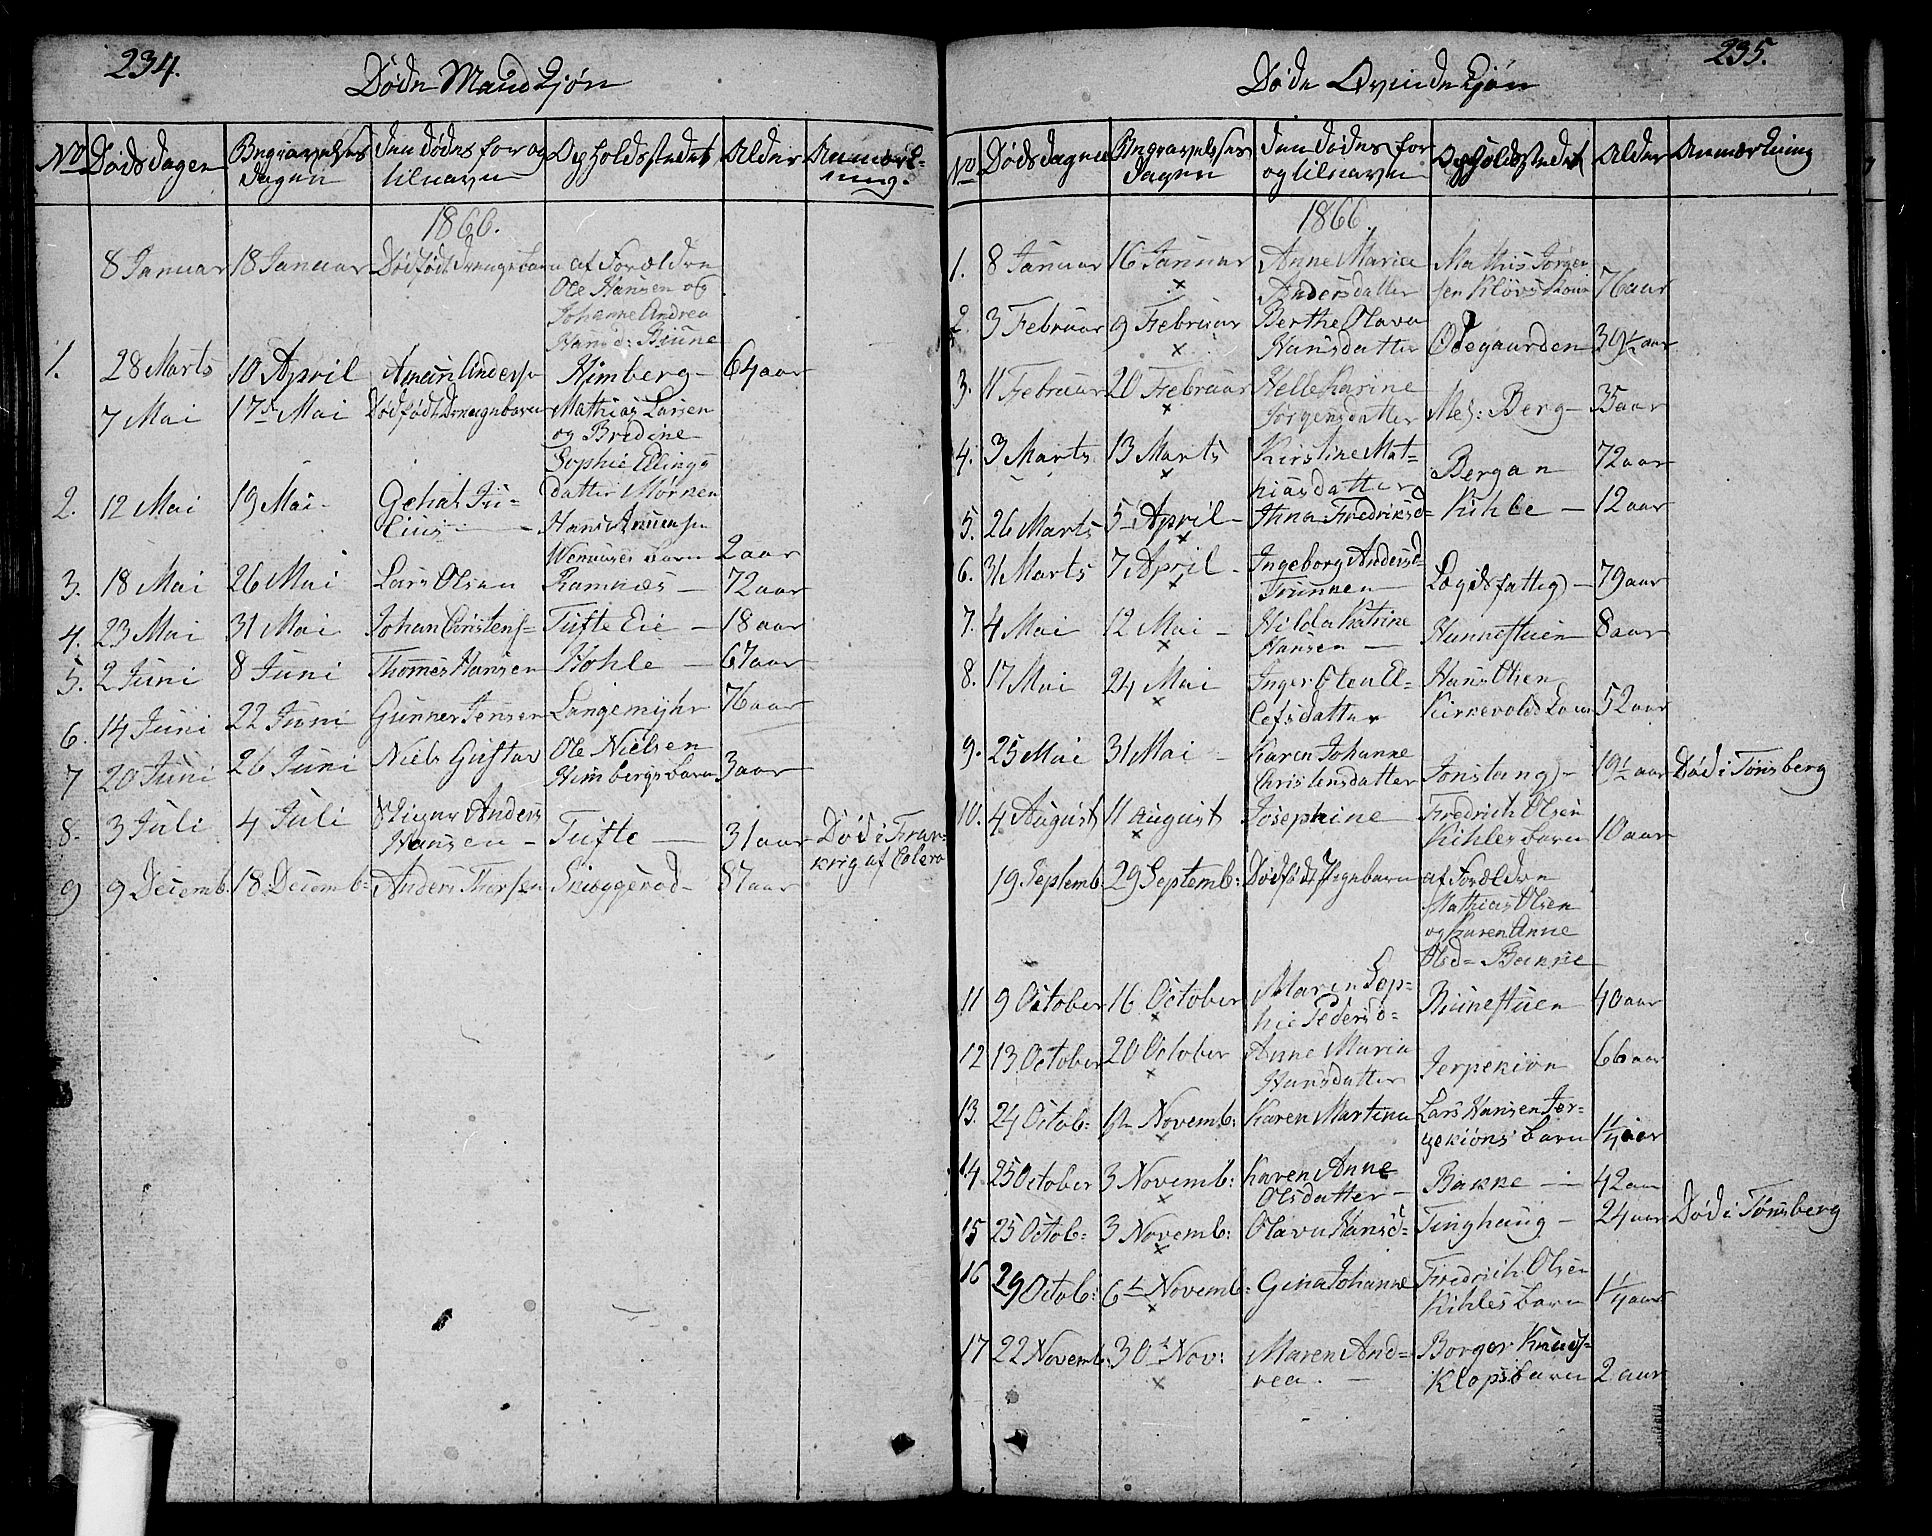 234.
Døde Mandkjøn
No Dødsdagen Begravelses Dagen Den Dødes for og tilnavn Opholdsstedet Alder Anmærkning.
1866.
8 Januar 18 Januar Dødfødt Drengebarn af Forældre
Ole Hansen og
Johanne Andrea
Hansd:
1. 28 Marts 10 April Anderss Himberg - 64 aar
7 Mai 17de Mai Dødfødt Drengebarn Mathias Larsen
og Bredine
Sophie Ellings
datter
2. 12 Mai 19 Mai - Julius Hans
barn 2 aar
3. 18 Mai 26 Mai Lars Olsen Ramnæs - 72 aar
4. 23 Mai 31 Mai Johan Christens= Tufte Eie - 18 aar
5. 2 Juni 8 Juni Thomas Hansen Hohle - 67 aar
6. 14 Juni 22 Juni Gunner Jensen Langemyhr 76 aar
7 20 Juni 26 Juni Niels Gustav Ole Nielsen
Himbergs barn 3 aar
8. 3 Juli 4 Juli Anders
Hansen - Tufte - 31 aar Død i
af Colera
9 9 Decemb. 18 Decemb: Anders Thorsen Skieggerød - 87 aar
235.
Døde Qvindekjøn
No Dødsdagen Begravelses Dagen Den Dødes for og tilnavn Opholdsstedet Alder Anmærkning
1866.
1. 8 Januar 16 Januar Anne Maria Mathis Jørgen
x Andersdatter sen 76 aar
2. 3 Februar 9 Februar Berthe Olava
x Hansdatter Ødegaarden 39½ aar
3. 11 Februar 20 Februar Helle Karine
x Jørgensdatter Berg - 35 aar
4. 3 Marts 13 Marts Kirstine Mat=
x hiasdatter Bergan 72 aar
5. 26 Marts 5 April - Anna Fredriksd= Kihle - 12 aar
x
6. 31 Marts 7 April - Ingeborg Andersd=
x Lægdsfattig - 79 aar
7. 4 Mai 12 Mai - Hilda Katrine
x Hansen - Hunnestuen 8 aar
8. 17 Mai 24 Mai Inger Olea El= Hans Olsen
x lefsdatter Kirkevolds 52 aar
9. 25 Mai 31 Mai - Karen Johanne
Christensdatter Jonstang - 19½ aar Død i Tønsberg
10. 4 August 11 August Josephine Fredrich Olsen
x Kihles barn 10 aar
19 Septemb: 29 Septemb: Dødfødt Pigebarn af Forældre
Mathias Olsen
og Karen Anne
Olsd= Bakke
11 9 October 16 October Maren Sop=
x hie Pedersd= 40 aar
12 13 October 20 October Anne Maria
x Hansdatter Jerpekiøn 66 aar
13. 24 Octob= 1ste Novemb: Karen Martina Lars Hansen Jer=
x pekiøns barn 1¼ aar
14 25 October 3 Novemb: Karen Anne
x Olsdatter - Bakke - 42 aar
15 25 Octob= 3 Novemb: Olava Hansd= Tinghaug - 24 aar Død i Tønsberg
x
16 29 Octob: 6te Novemb: Gina Johanne Fredrich Olsen
x Kihles barn 1¼ aar
17 22 Novemb: 30te Nov: Maren And= Borger Knuds=
x rea. - Klops barn 2 aar